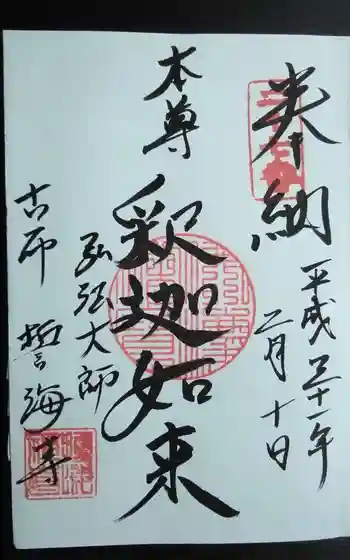 奉納
平成三十一年
二月十日
本尊
釈迦如来
弘法大師
古而
誓海寺